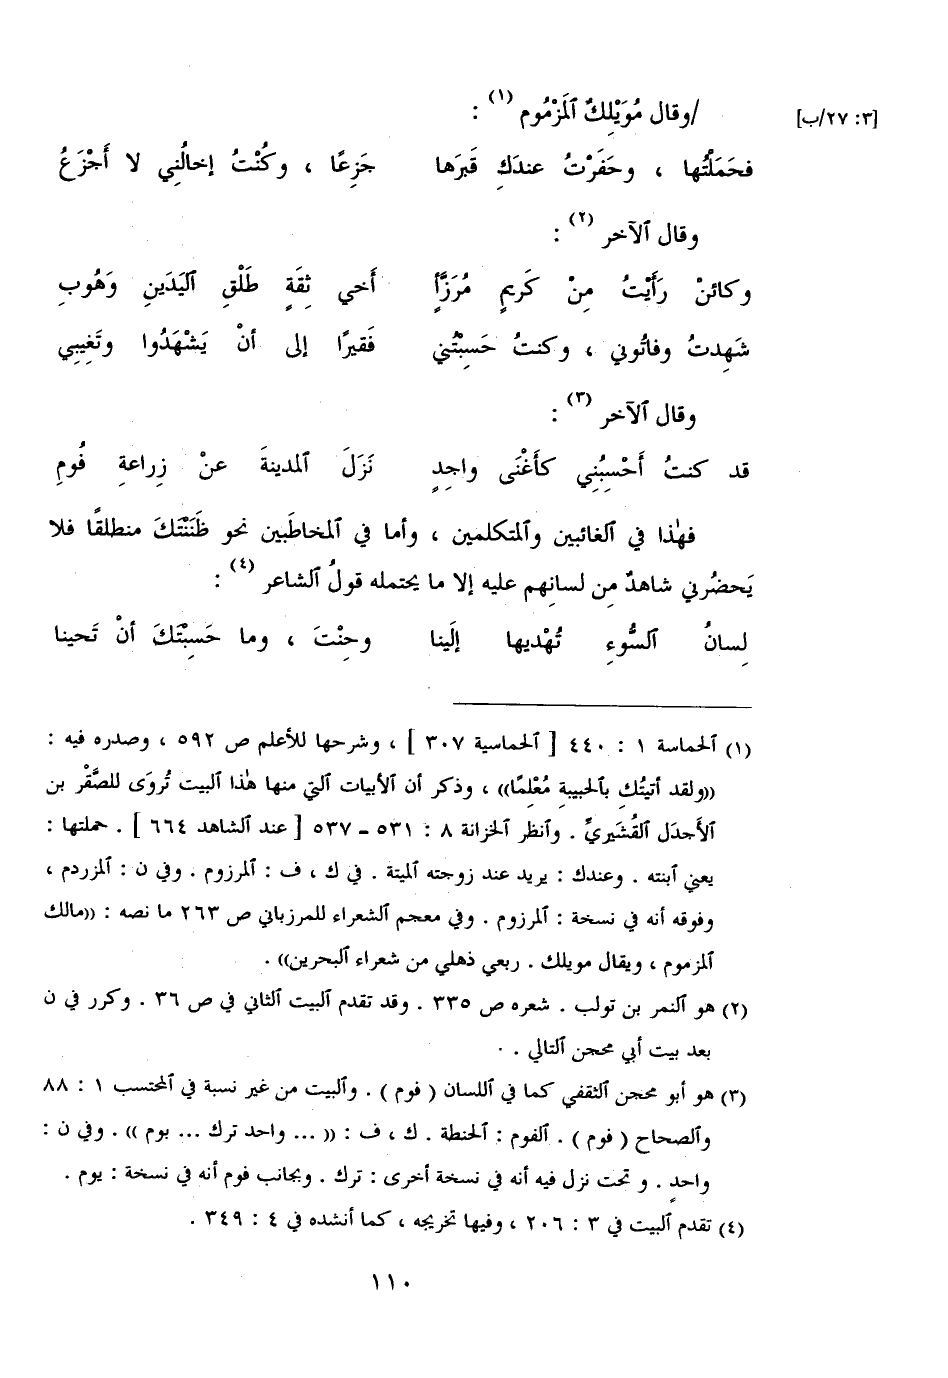 [٣: ٢٧/ب] /وقال مُوَيْلِكٌ ٱلمَزْمُوم (١) :
فحَمَلْتُها ، وحَفَرْتُ عندَكِ قَبرَها جَزِعًا ، وكُنْتُ إخالُنِي لا أَجْزَعُ
وقال ٱلآخر (٢) :
وكائنْ رَأَيْتُ مِنْ كَرِيمٍ مُرَزَّإٍ أَخي ثِقَةٍ طَلْقِ ٱليَدَينِ وَهُوبِ
شَهِدتُ وفاتُوني ، وكنتُ حَسِبْتُني فَقيرًا إلى أنْ يَشْهَدُوا وتَغِيبِي
وقال ٱلآخر (٣) :
قد كنتُ أَحْسِبُنِي كأَغْنَى واجِدٍ نَزَلَ ٱلمدينةَ عنْ زِراعةِ فُومِ
فهٰذا في ٱلغائبين وٱلمتكلمين ، وأما في ٱلمخاطَبين نحو ظَنَنْتَكَ منطلقًا فلا
يَحضُرني شاهدٌ مِن لسانهم عليه إلا ما يحتمله قولُ ٱلشاعر (٤) :
لِسانُ ٱلسُّوءِ تُهْديها إلَينا وحِنْتَ ، وما حَسِبْتَكَ أنْ تَحينا
(١) ٱلحماسة ١ : ٤٤٠ [ ٱلحماسية ٣٠٧ ] ، وشرحها للأعلم ص ٥٩٢ ، وصدره فيه :
((ولقد أتيتُكِ بٱلحبيبةِ مُعْلِمًا)) ، وذكر أن ٱلأبيات ٱلتي منها هٰذا ٱلبيت تُروَى للصَّقْر بن
ٱلأجدَل ٱلقُشَيريّ . وٱنظر ٱلخزانة ٨ : ٥٣١ – ٥٣٧ [ عند ٱلشاهد ٦٦٤ ] . حملتها :
يعني ٱبنته . وعندك : يريد عند زوجته ٱلميتة . في ك ، ف : ٱلمرزوم . وفي ن : ٱلمزردم ،
وفوقه أنه في نسخة : ٱلمرزوم . وفي معجم ٱلشعراء للمرزباني ص ٢٦٣ ما نصه : ((مالك
ٱلمزموم ، ويقال مويلك . ربعي ذهلي من شعراء ٱلبحرين)) .
(٢) هو ٱلنمر بن تولب . شعره ص ٣٣٥ . وقد تقدم ٱلبيت ٱلثاني في ص ٣٦ . وكرر في ن
بعد بيت أبي محجن ٱلتالي .
(٣) هو أبو محجن ٱلثقفي كما في ٱللسان ( فوم ) . وٱلبيت من غير نسبة في ٱلمحتسب ١ : ٨٨
وٱلصحاح ( فوم ) . ٱلفوم : ٱلحنطة . ك ، ف : (( ... واحد ترك ... بوم )) . وفي ن :
واحدٍ . و تحت نزل فيه أنه في نسخة أخرى : ترك . وبجانب فوم أنه في نسخة : يوم .
(٤) تقدم ٱلبيت في ٣ : ٢٠٦ ، وفيها تخريجه ، كما أنشده في ٤ : ٣٤٩ .
١١٠